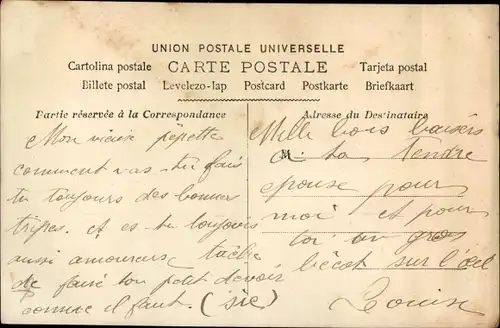 UNION POSTALE UNIVERSELLE
Cartolina postale CARTE POSTALE Tarjeta postal
Billete postal Levelezo-lap Postcard Postkarte Briefkaart
Partie réservée à la Correspondance
Adresse du Destinataire
Mon vieux pépette
comment vas-tu fais
tu toujours des bonnes
tripes. et es tu toujours
aussi amoureux, tâche
de faire ton petit devoir
comme il faut. (sic)
Mille bons baisers
M
a ta tendre
epouse pour
moi et pour
toi un gros
bécot sur l'œil
Louise